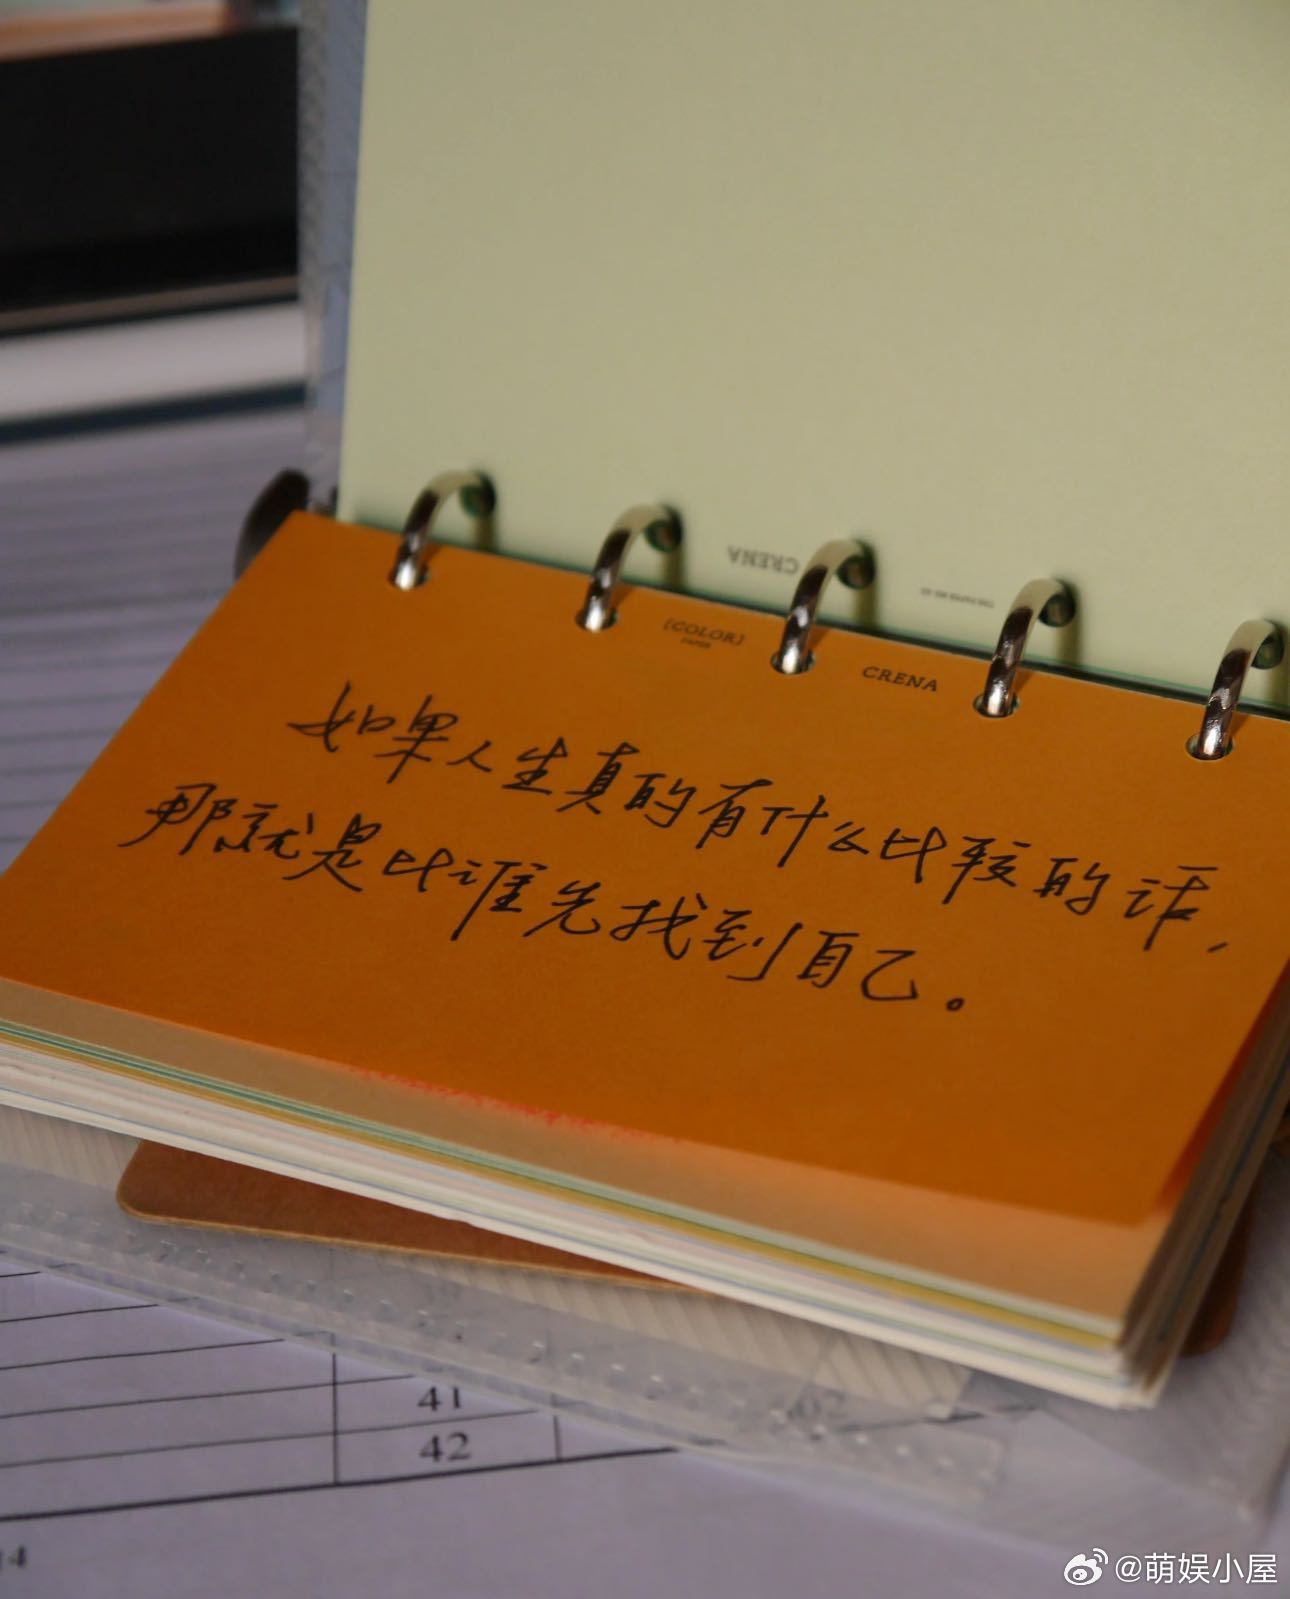 CRENA
[COLOR]
PAPER
CRENA
如果人生真的有什么比较的话，
那就是比谁先找到自己。
41
42
02
14
@萌娱小屋